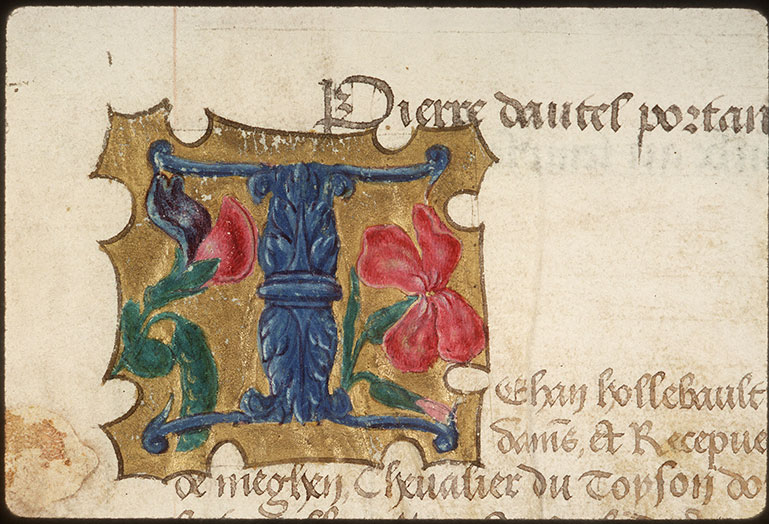 Pierre dautel portan
I
Ehan hollebault
dam̄s, et Recepue
de meghen, Chevalier du Toyson do